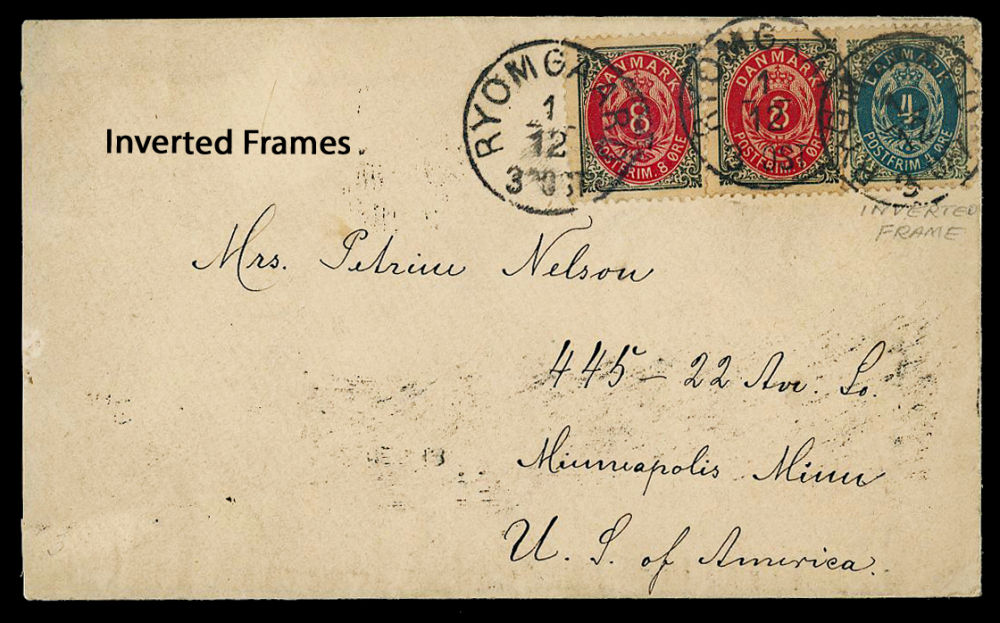 RYOMGAARD
1
12
3 POST
DANMARK
8
POSTFRIM. 8 ØRE
RYOMGAARD
1
12
POST
DANMARK
8
POSTFRIM. 8 ØRE
DANMARK
4
POSTFRIM. 4 ØRE
INVERTED
FRAME
Inverted Frames
Mrs. Petrine Nelson
445 – 22 Ave. So.
Minneapolis Minn
U. S. of America.